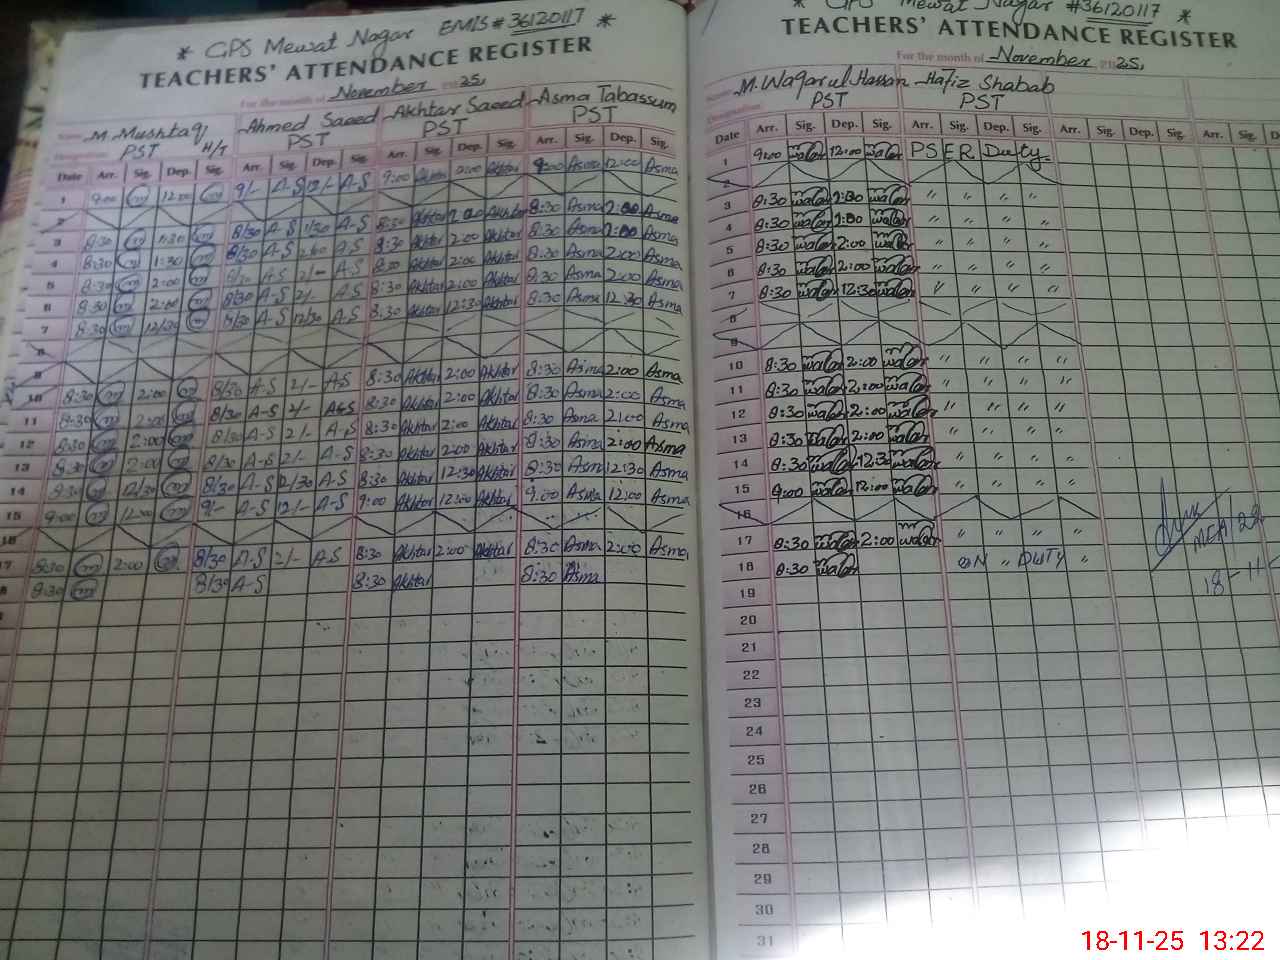 * GPS Mewat Nagar EMIS # 36120117 *
TEACHERS' ATTENDANCE REGISTER
For the month of November 2025,
Name M. Mushtaq Ahmed Saeed Akhtar Saeed Asma Tabassum
Designation PST H/T PST PST PST
Date Arr. Sig. Dep. Sig. Arr. Sig. Dep. Sig. Arr. Sig. Dep. Sig. Arr. Sig. Dep. Sig.
1 9:00 m 12:00 m 9/- A-S 12/- A-S 9:00 Akhtar Akhtar 9:00 Asma 12:00 Asma
2
3 8:30 m 1:30 m 8/30 A-S 1/30 A-S 8:30 Akhtar Akhtar 8:30 Asma Asma
4 8:30 m 1:30 m 8/30 A-S A-S 8:30 Akhtar 2:00 Akhtar 8:30 Asma Asma
5 8:30 m 2:00 m 8/30 A-S 2/- A-S 8:30 Akhtar 2:00 Akhtar 8:30 Asma 2:00 Asma
6 8:30 m 2:00 m 8/30 A-S 2/- A-S 8:30 Akhtar 2:00 Akhtar 8:30 Asma 2:00 Asma
7 8:30 m 12/30 m 8/30 A-S 12/30 A-S 8:30 Akhtar 12:30 Akhtar 8:30 Asma 12:30 Asma
8
9
10 8:30 m 2:00 m 8/30 A-S 2/- A-S 8:30 Akhtar 2:00 Akhtar 8:30 Asma 2:00 Asma
11 8:30 m 2:00 m 8/30 A-S 2/- A-S 8:30 Akhtar 2:00 Akhtar 8:30 Asma 2:00 Asma
12 8:30 m 2:00 m 8/30 A-S 2/- A-S 8:30 Akhtar 2:00 Akhtar 8:30 Asma 2:00 Asma
13 8:30 m 2:00 m 8/30 A-S 2/- A-S 8:30 Akhtar 2:00 Akhtar 8:30 Asma 2:00 Asma
14 8:30 m 12/30 m 8/30 A-S 12/30 A-S 8:30 Akhtar 12:30 Akhtar 8:30 Asma 12:30 Asma
15 9:00 m 12:00 m 9/- A-S 12/- A-S 9:00 Akhtar 12:00 Akhtar 9:00 Asma 12:00 Asma
16
17 8:30 m 2:00 m 8/30 A-S 2/- A-S 8:30 Akhtar 2:00 Akhtar 8:30 Asma 2:00 Asma
8:30 m 8/30 A-S 8:30 Akhtar 8:30 Asma
GPS Mewat Nagar #36120117 *
TEACHERS' ATTENDANCE REGISTER
For the month of November, 2025,
Name M. Waqar ul Hassan Hafiz Shabab
PST PST
Date Arr. Sig. Dep. Sig. Arr. Sig. Dep. Sig. Arr. Sig. Dep. Sig. Arr. Sig.
1 9:00 waqar 12:00 waqar PSER Duty
2
3 8:30 waqar waqar " " " "
4 8:30 waqar waqar " " " "
5 8:30 waqar 2:00 waqar " " " "
6 8:30 waqar 2:00 waqar " " " "
7 8:30 waqar 12:30 waqar " " " "
8
9
10 8:30 waqar 2:00 waqar " " " "
11 8:30 waqar 2:00 waqar " " " "
12 8:30 waqar 2:00 waqar " " " "
13 8:30 waqar 2:00 waqar " " " "
14 8:30 waqar 12:30 waqar " " " "
15 9:00 waqar 12:00 waqar " " " "
16
17 8:30 waqar 2:00 waqar " " " "
18 8:30 waqar ON " DUTY "
19
20
21
22
23
24
25
26
27
28
29
30
31
MEA/22
18-11-
18-11-25 13:22